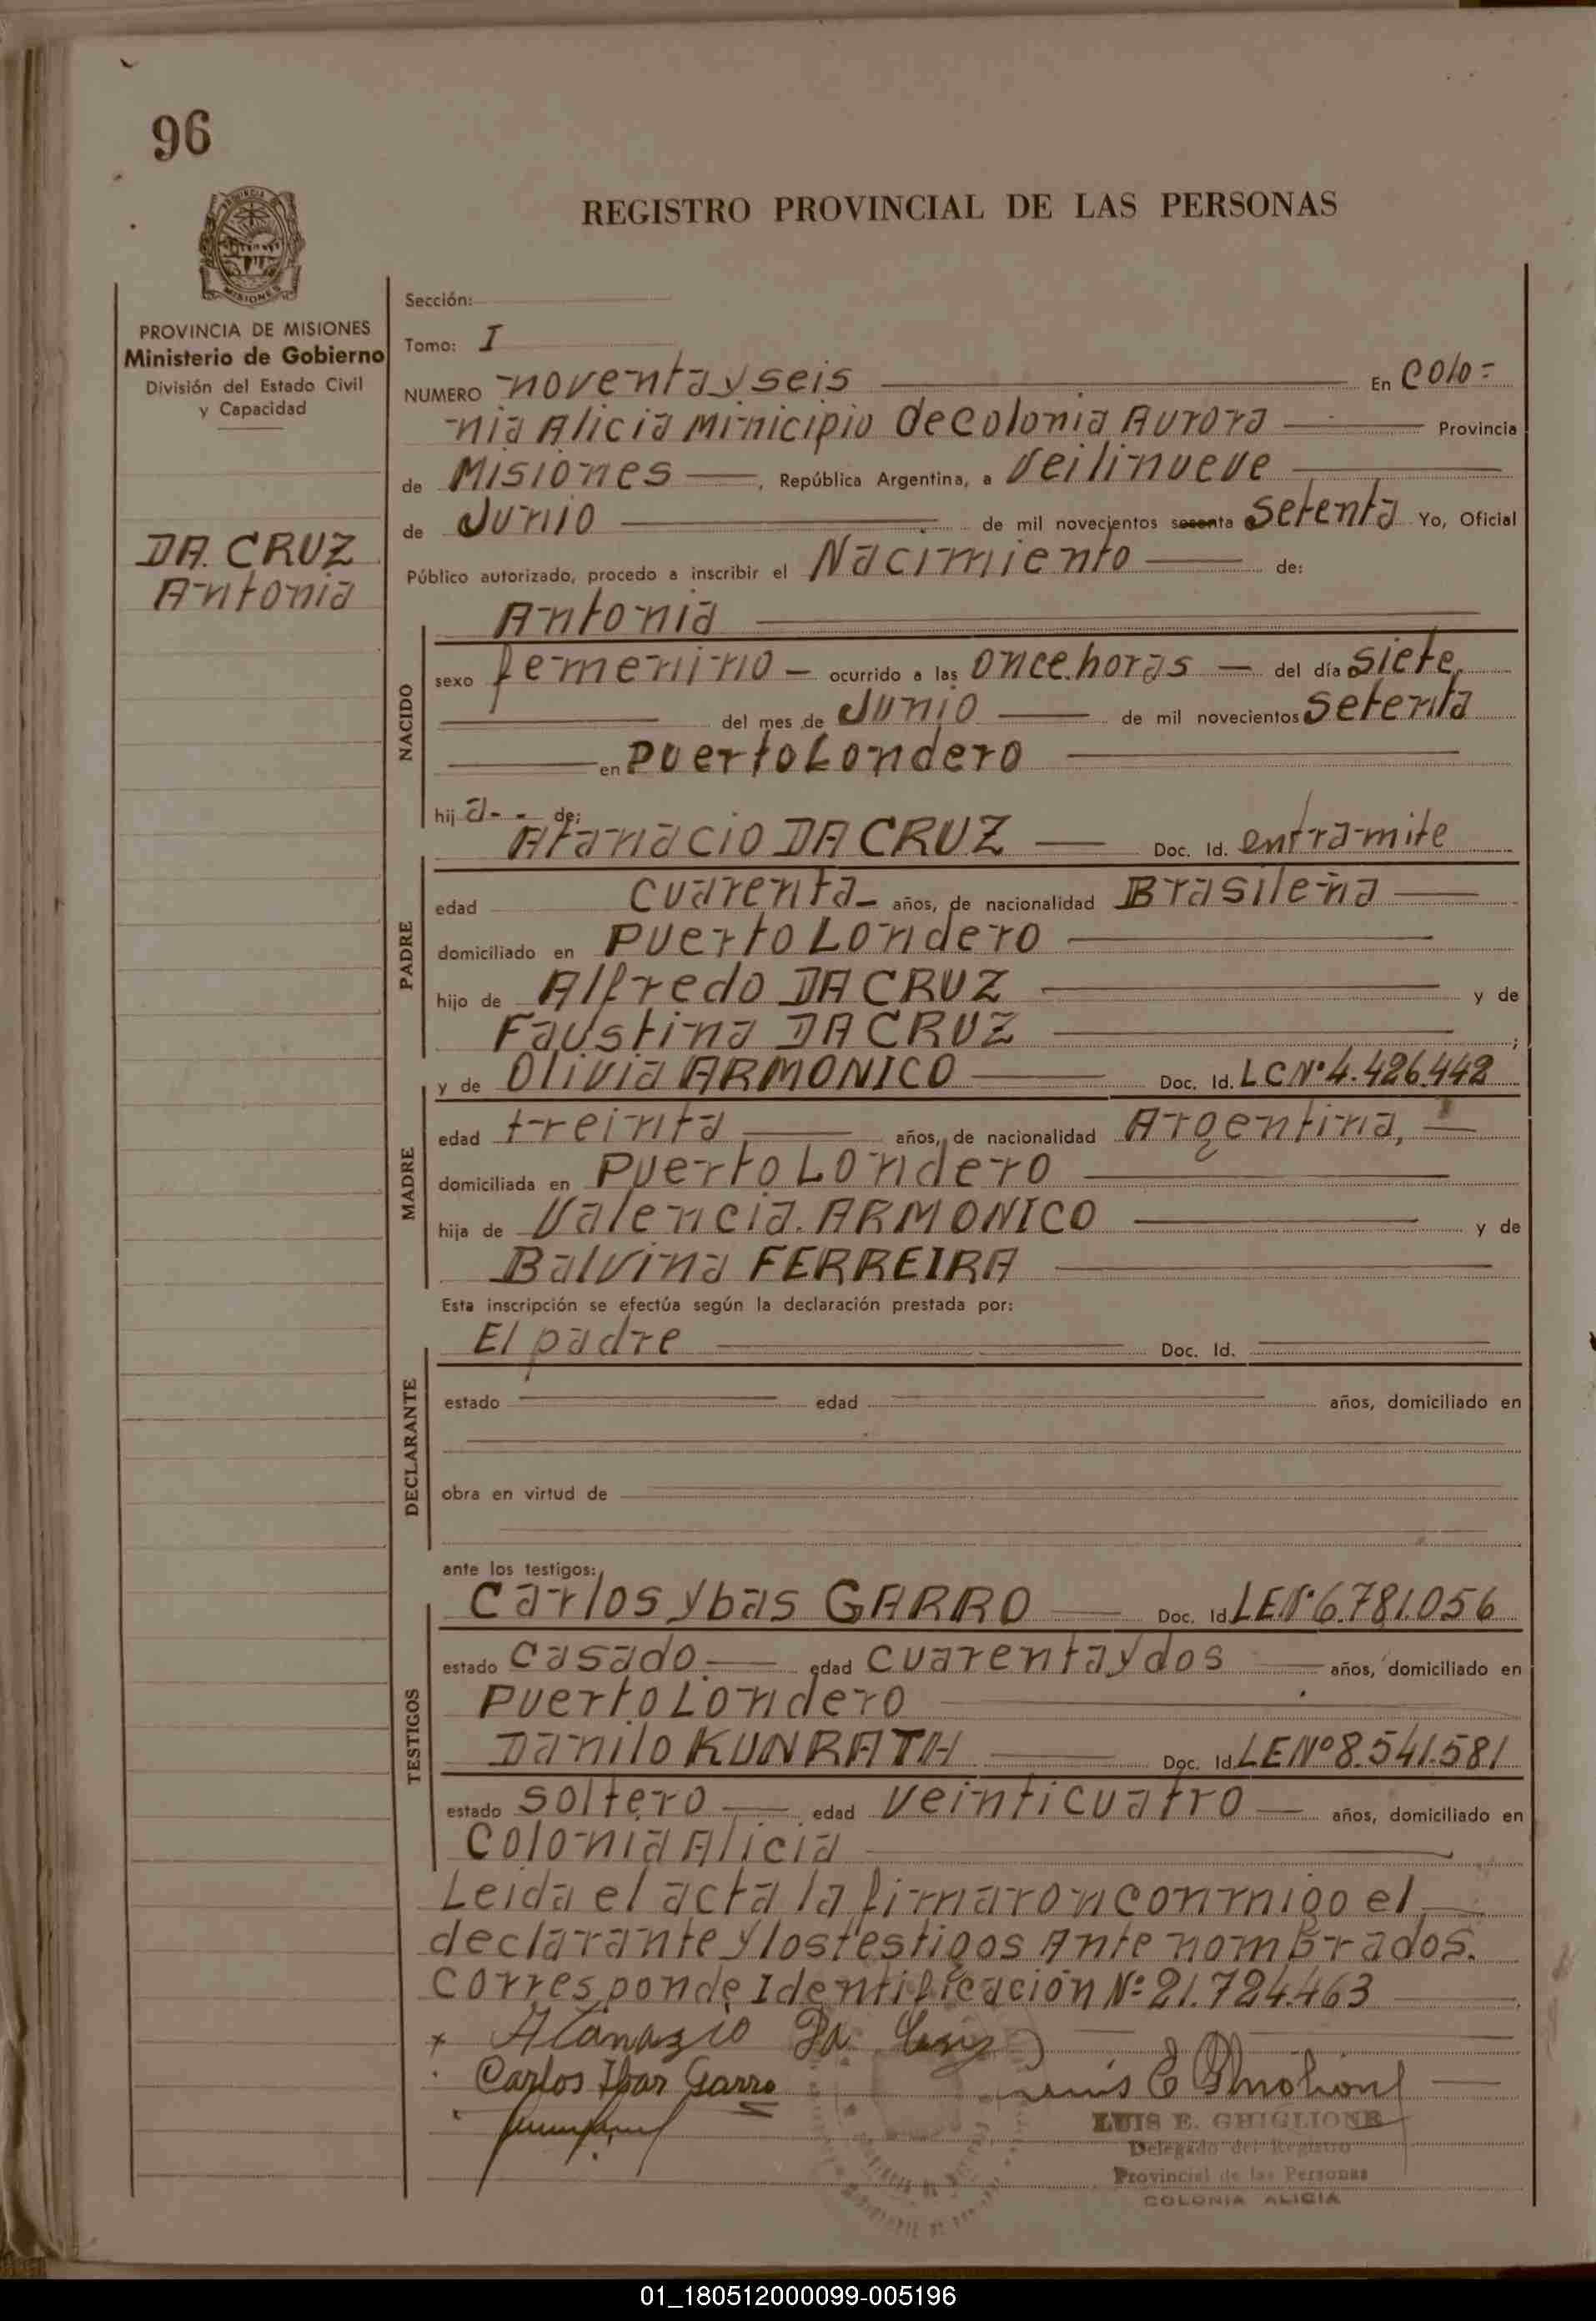 96
REGISTRO PROVINCIAL DE LAS PERSONAS
PROVINCIA DE MISIONES
Ministerio de Gobierno
División del Estado Civil
y Capacidad
DA. CRUZ
Antonia
Sección:
Tomo: I
NUMERO noventa y seis En Colo=
nia Alicia Minicipio de Colonia Aurora Provincia
de Misiones, República Argentina, a Veilinueve
de Junio de mil novecientos sesenta Setenta Yo, Oficial
Público autorizado, procedo a inscribir el Nacimiento de:
Antonia
NACIDO
sexo femenino - ocurrido a las once horas - del día siete
del mes de Junio de mil novecientos setenta
en Puerto Londero
hij a - - de:
Atanacio DA CRUZ Doc. Id. en tramite
PADRE
edad cuarenta - años, de nacionalidad Brasileña
domiciliado en Puerto Londero
hijo de Alfredo DA CRUZ y de
Faustina DA CRUZ ;
y de Olivia ARMONICO Doc. Id. LC Nº 4.426.442
MADRE
edad treinta años, de nacionalidad Argentina,
domiciliada en Puerto Londero
hija de Valencia. ARMONICO y de
Balvina FERREIRA
Esta inscripción se efectúa según la declaración prestada por:
El padre Doc. Id.
DECLARANTE
estado edad años, domiciliado en
obra en virtud de
ante los testigos:
Carlos Ybas GARRO Doc. Id. LE Nº 6.781.056
TESTIGOS
estado casado. edad cuarenta y dos años, domiciliado en
Puerto Londero
Danilo KUNRATH Doc. Id. LE Nº 8.541.581
estado soltero edad veinticuatro años, domiciliado en
Colonia Alicia
Leida el acta la firmaron conmigo el
declarante y los testigos Ante nomBrados.
Corresponde Identificación Nº 21.724.463
x Atanazio Da Cruz
Carlos Ibar Garro
Luis E Ghiglione
LUIS E. GHIGLIONE
Delegado del Registro
Provincial de las Personas
COLONIA ALICIA
01_180512000099-005196